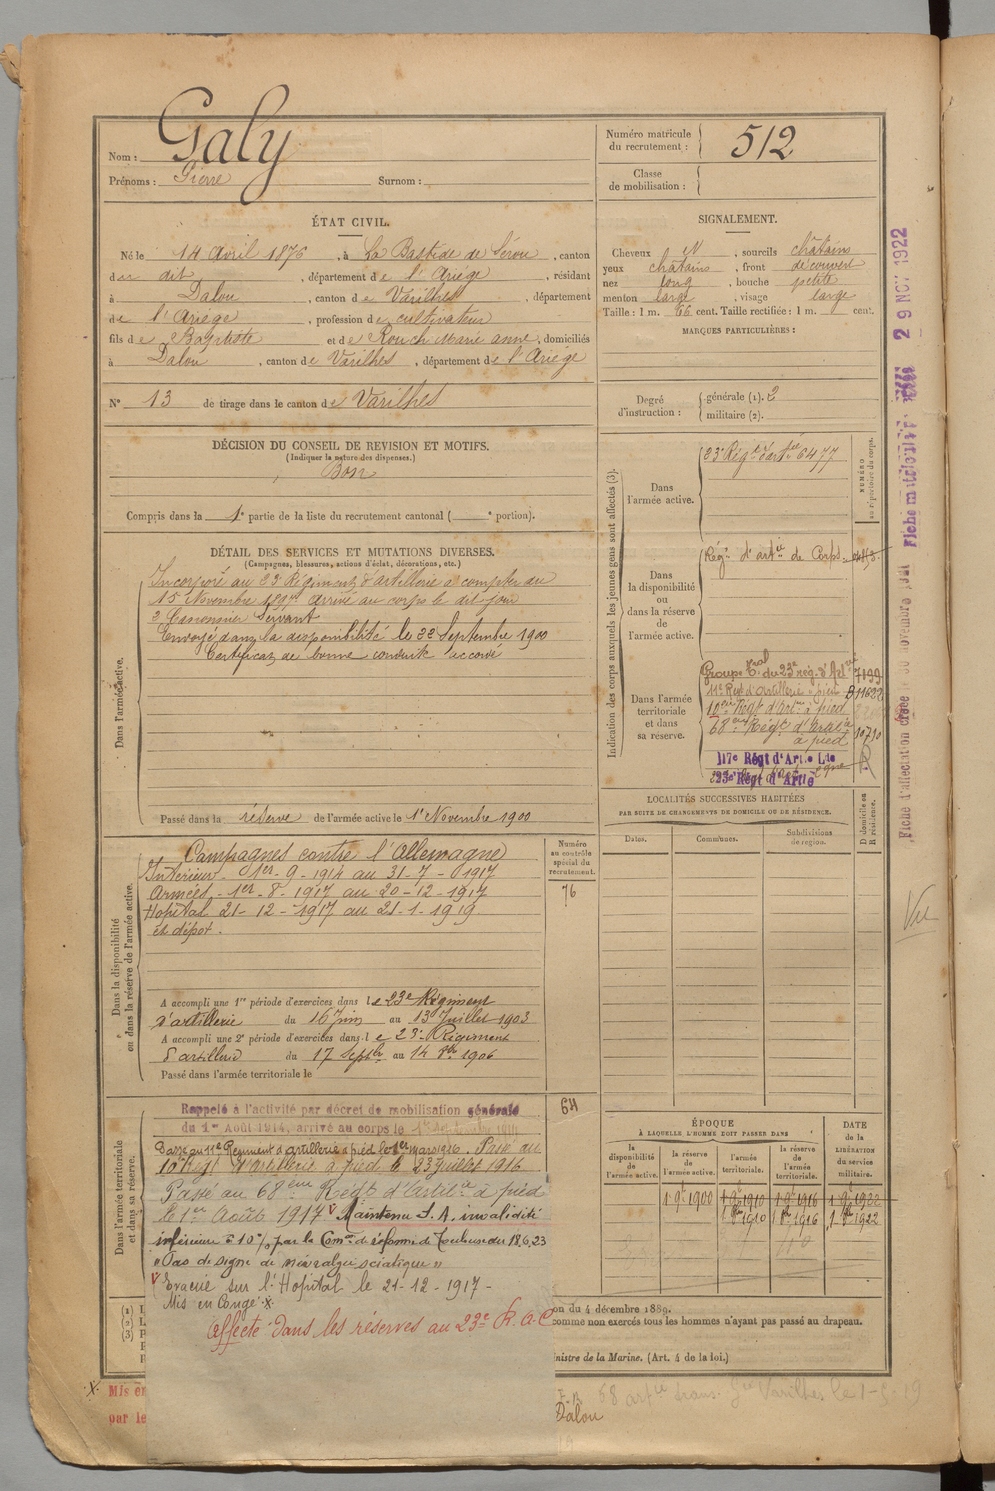 Nom : Galy
Prénoms : Pierre Surnom :
Numéro matricule du recrutement : 512
Classe de mobilisation :
ÉTAT CIVIL.
Né le 14 Avril 1876, à La Bastide de Sérou, canton
du dit, département de l'Ariège, résidant
à Dalou, canton de Varilhes, département
de l'Ariège, profession de cultivateur
fils de Baptiste et de Rouch Marie anne, domiciliés
à Dalou, canton de Varilhes, département de l'Ariège
N° 13 de tirage dans le canton de Varilhes
SIGNALEMENT.
Cheveux N, sourcils châtains
yeux châtains, front découvert
nez long, bouche petite
menton large, visage large
Taille : 1 m. 66 cent. Taille rectifiée : 1 m. cent.
MARQUES PARTICULIÈRES :
Degré d'instruction : générale (1). 3
militaire (2).
DÉCISION DU CONSEIL DE REVISION ET MOTIFS.
(Indiquer la nature des dispenses.)
Bon
Compris dans la 1e partie de la liste du recrutement cantonal ( e portion).
DÉTAIL DES SERVICES ET MUTATIONS DIVERSES.
(Campagnes, blessures, actions d'éclat, décorations, etc.)
Dans l'armée active.
Incorporé au 23 Régiment d'artillerie à compter du
15 Novembre 1897. Arrivé au corps le dit jour
2 Canonnier Servant
Envoyé dans la disponibilité le 22 Septembre 1900
Certificat de bonne conduite accordé
Passé dans la réserve de l'armée active le 1er Novembre 1900
Indication des corps auxquels les jeunes gens sont affectés (3).
NUMÉRO au répertoire du corps.
Dans l'armée active.
23e Régt d'artie 6477
Dans la disponibilité ou dans la réserve de l'armée active.
Régt d'artie de Corps
Dans l'armée territoriale et dans sa réserve.
Groupe Tal du 23e rég. d'Artie 7199
11e Regt d'Artillerie à pied
10eme Régt d'Artie à pied
68eme Régt d'Artie à pied 10790
117e Régt d'Artie Lde
23e Régt d'Artie
LOCALITÉS SUCCESSIVES HABITÉES
PAR SUITE DE CHANGEMENTS DE DOMICILE OU DE RÉSIDENCE.
Dates. Communes. Subdivisions de région.
D domicile ou R résidence.
Dans la disponibilité ou dans la réserve de l'armée active.
Numéro au contrôle spécial du recrutement.
76
Campagnes contre l'Allemagne
Intérieur - 1er - 9 - 1914 au 31 - 7 - 1917
Armées - 1er - 8 - 1917 au 20 - 12 - 1917
Hopital 21 - 12 - 1917 au 21 - 1 - 1919
et dépot.
A accompli une 1re période d'exercices dans le 23e Régiment
d'artillerie du 16 Juin au 13 Juillet 1903
A accompli une 2e période d'exercices dans le 23e Régiment
d'artillerie du 17 Septbre au 14 8bre 1906
Passé dans l'armée territoriale le
64
Dans l'armée territoriale et dans sa réserve.
Rappelé à l'activité par décret de mobilisation générale
du 1er Août 1914, arrivé au corps le
Passé au 11e Régiment d'artillerie à pied le 1er mars 1916. Passé au
10e Régt d'Artillerie à pied le 23 juillet 1916
Passé au 68eme Régt d'Artilie à pied
le 1er Août 1917 V Maintenu S. A. invalidité
inférieure à 10 % par la Comon de réforme de Toulouse du 18.6.23
"Pas de signe de névralgie sciatique"
V Evacué sur l'Hopital le 21-12-1917 -
Mis en Congé .X.
affecté dans les réserves au 23e R.A.C
ÉPOQUE
À LAQUELLE L'HOMME DOIT PASSER DANS
la disponibilité de l'armée active. la réserve de l'armée active. l'armée territoriale. la réserve de l'armée territoriale.
DATE de la LIBÉRATION du service militaire.
1 9e 1900 1 9e 1910 1 9e 1916 1 9e 1922
1 8e 1910 1 8e 1916 1 8e 1922
on du 4 décembre 1889.
comme non exercés tous les hommes n'ayant pas passé au drapeau.
inistre de la Marine. (Art. 4 de la loi.)
.X. Mis en
par le
Dalou
68 artie
Varilhes
Vu
Fiche d'affectation
29 NOV 1922